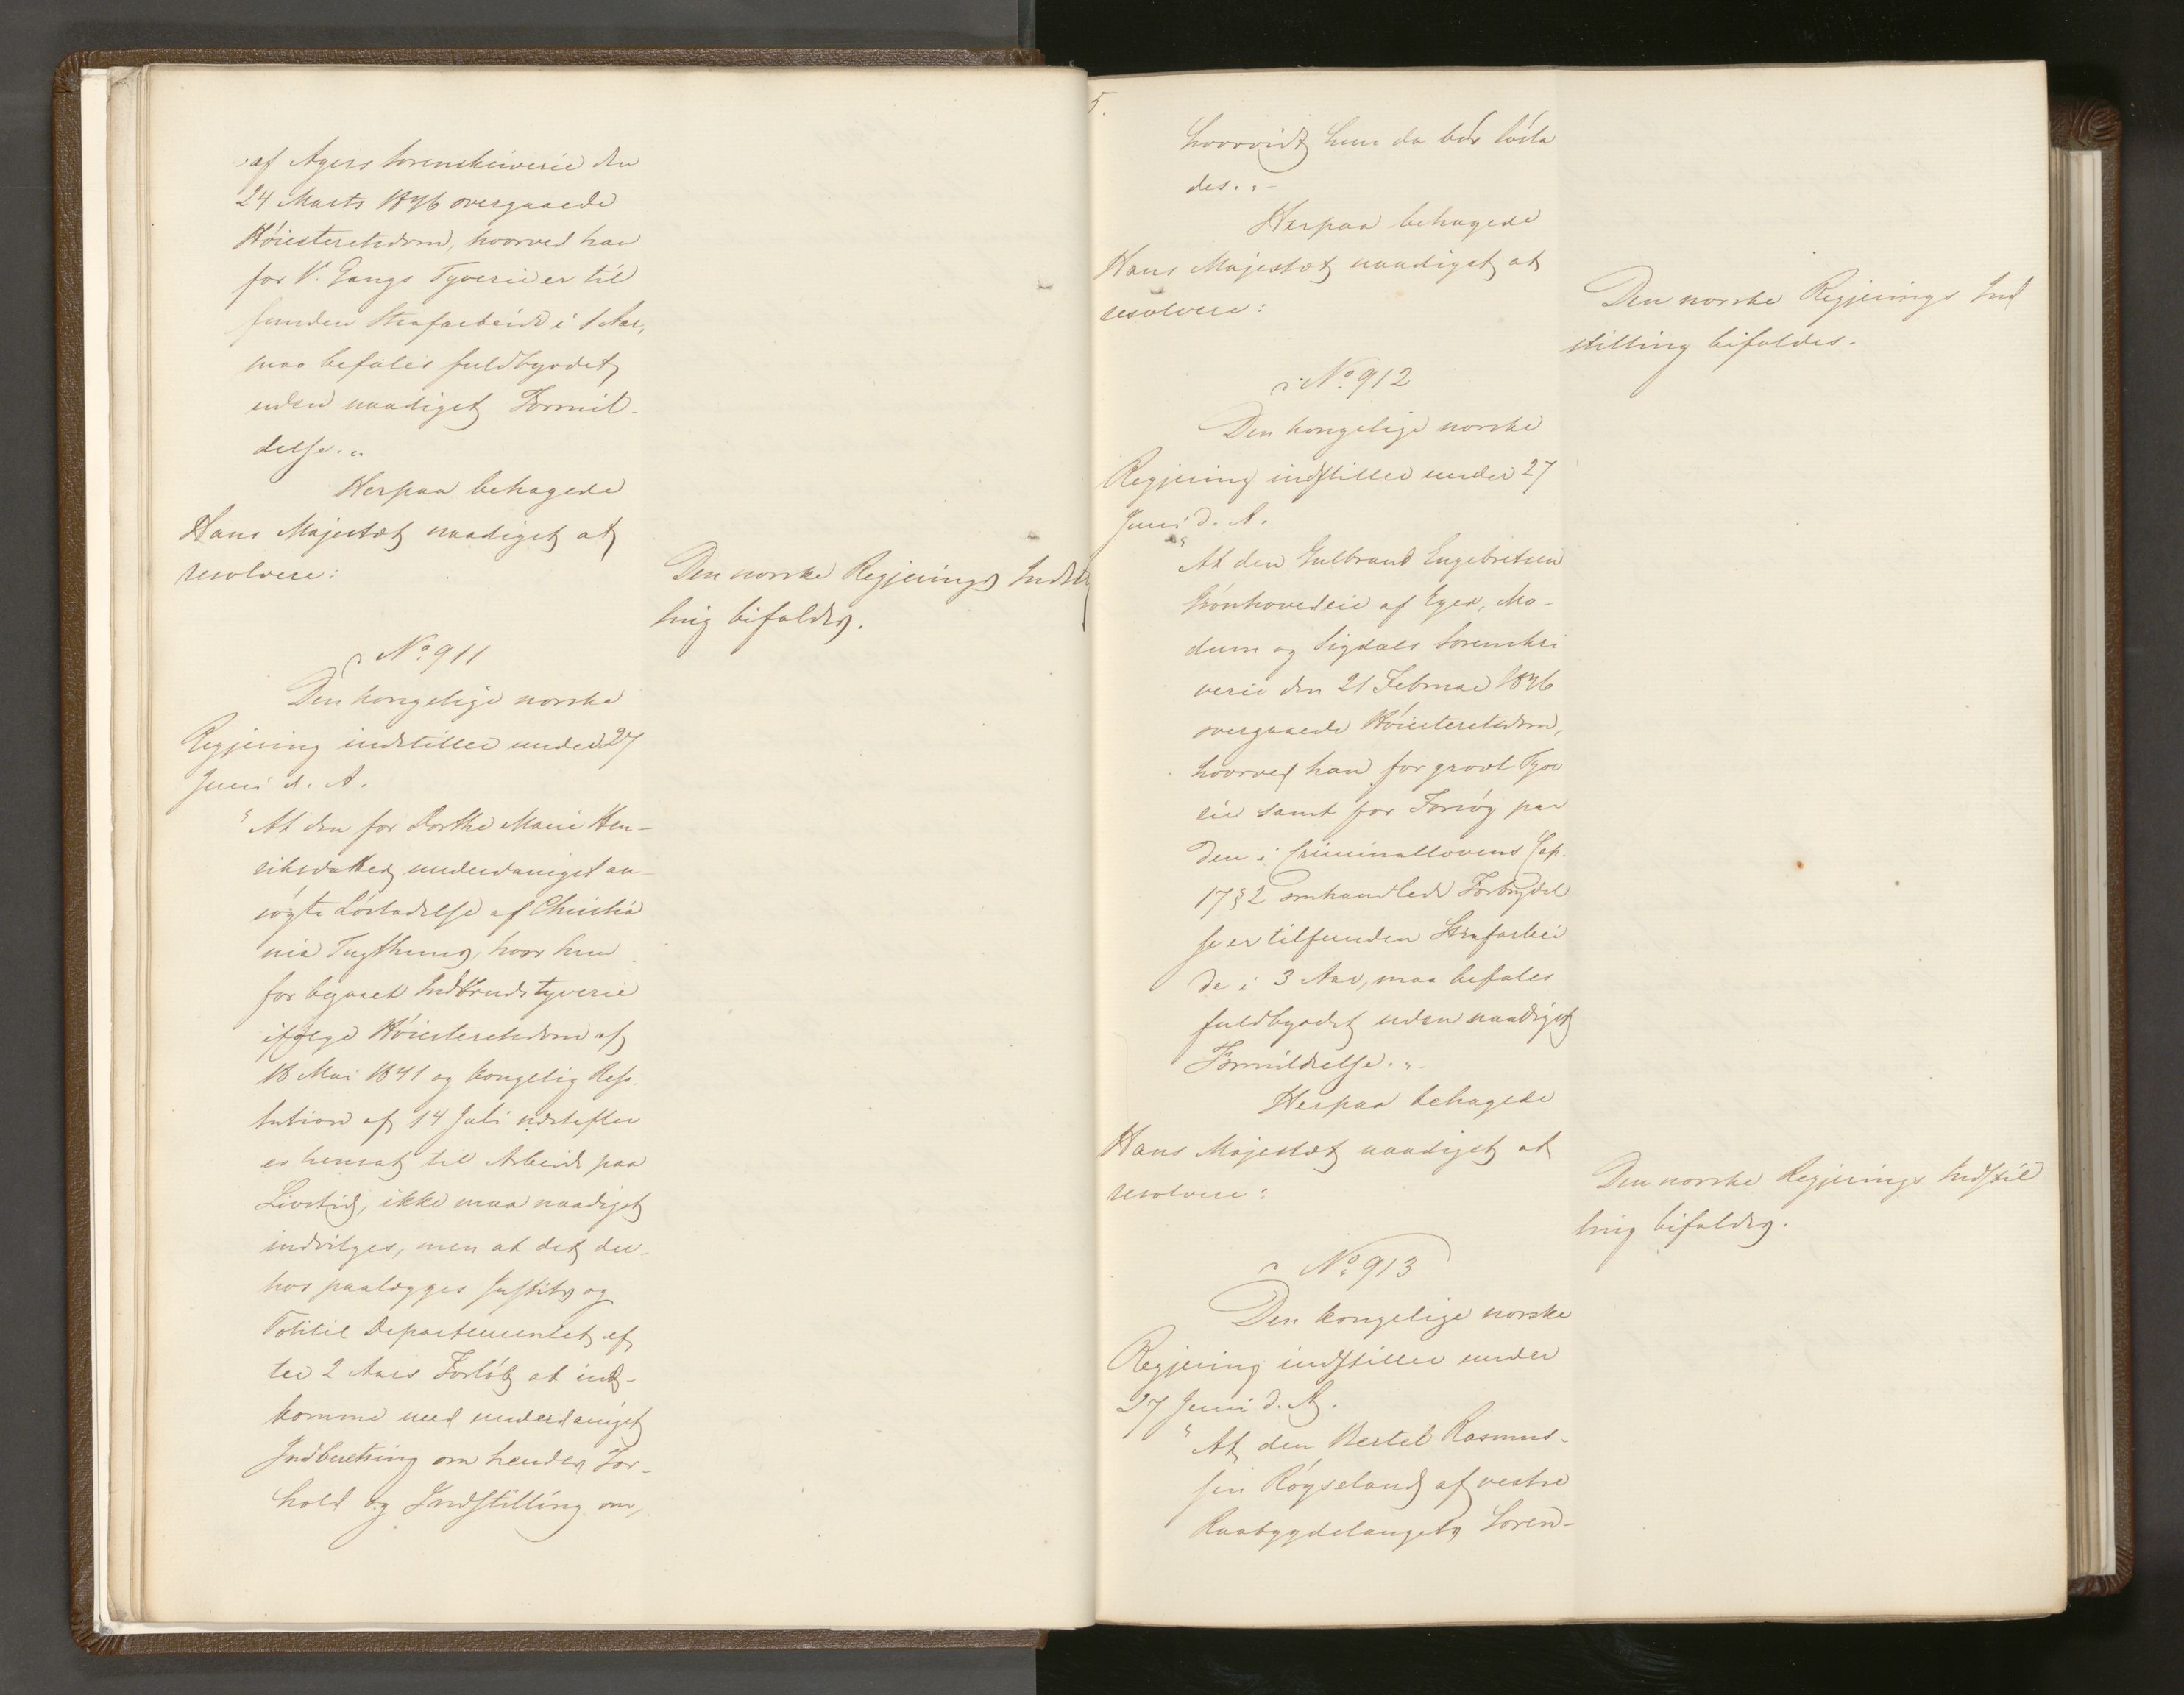 af Agers Sorenskriverie den
24 Marts 1846 overgaaede
Høiesteretsdom, hvorved han
for V. Gangs Tyverie er til
funden Strafarbeide i 1 Aar,
maa befales fuldbyrdet
uden naadigst Formil-
delse."
Herpaa behagede
Hans Majestæt naadigst at
resolvere:
Den norske Regjerings Indstil
ling bifaldes.
No. 911
Den kongelige norske
Regjering indstiller under 27
Juni d. A.
"At den for Dorthe Marie Hen-
riksdatter underdanigst an-
søgte Løsladelse af Christia
nia Tugthuus, hvor hun
for begaaet Indbrudstyverie
ifølge Høiesteretsdom af
18 Mai 1841 og kongelig Reso-
lution af 14 Juli næstefter
er hensat til Arbeide paa
Livstid, ikke maa naadigst
indvilges, men at det der-
hos paalægges Justits og
Politie Departementet ef
ter 2 Aars Forløb at ind-
komme med underdanigst
Indberetning om hendes For-
hold og Indstilling om,
5.
hvorvidt hun da bør løsla
des."
Herpaa behagede
Hans Majestæt naadigst at
resolvere:
Den norske Regjerings Ind
stilling bifaldes.
No. 912
Den kongelige norske
Regjering indstiller under 27
Juni d. A.
"At den Gulbrand Engebretsen
Grønhovedeie af Eger, Mo-
dum og Sigdals Sorenskri
verie den 21 Februar 1846
overgaaede Høiesteretsdom,
hvorved han for grovt Tyve
rie samt for Forsøg paa
den i Criminallovens Cap.
17 § 2 omhandlede Forbrydel
se er tilfunden Strafarbei
de i 3 Aar, maa befales
fuldbyrdet uden naadigst
Formildelse."
Herpaa behagede
Hans Majestæt naadigst at
resolvere:
Den norske Regjerings Indstil
ling bifaldes.
No. 913
Den kongelige norske
Regjering indstiller under
27 Juni d. A.
"At den Bertel Rasmus-
sen Røyseland af vestre
Raabygdelagets Soren-